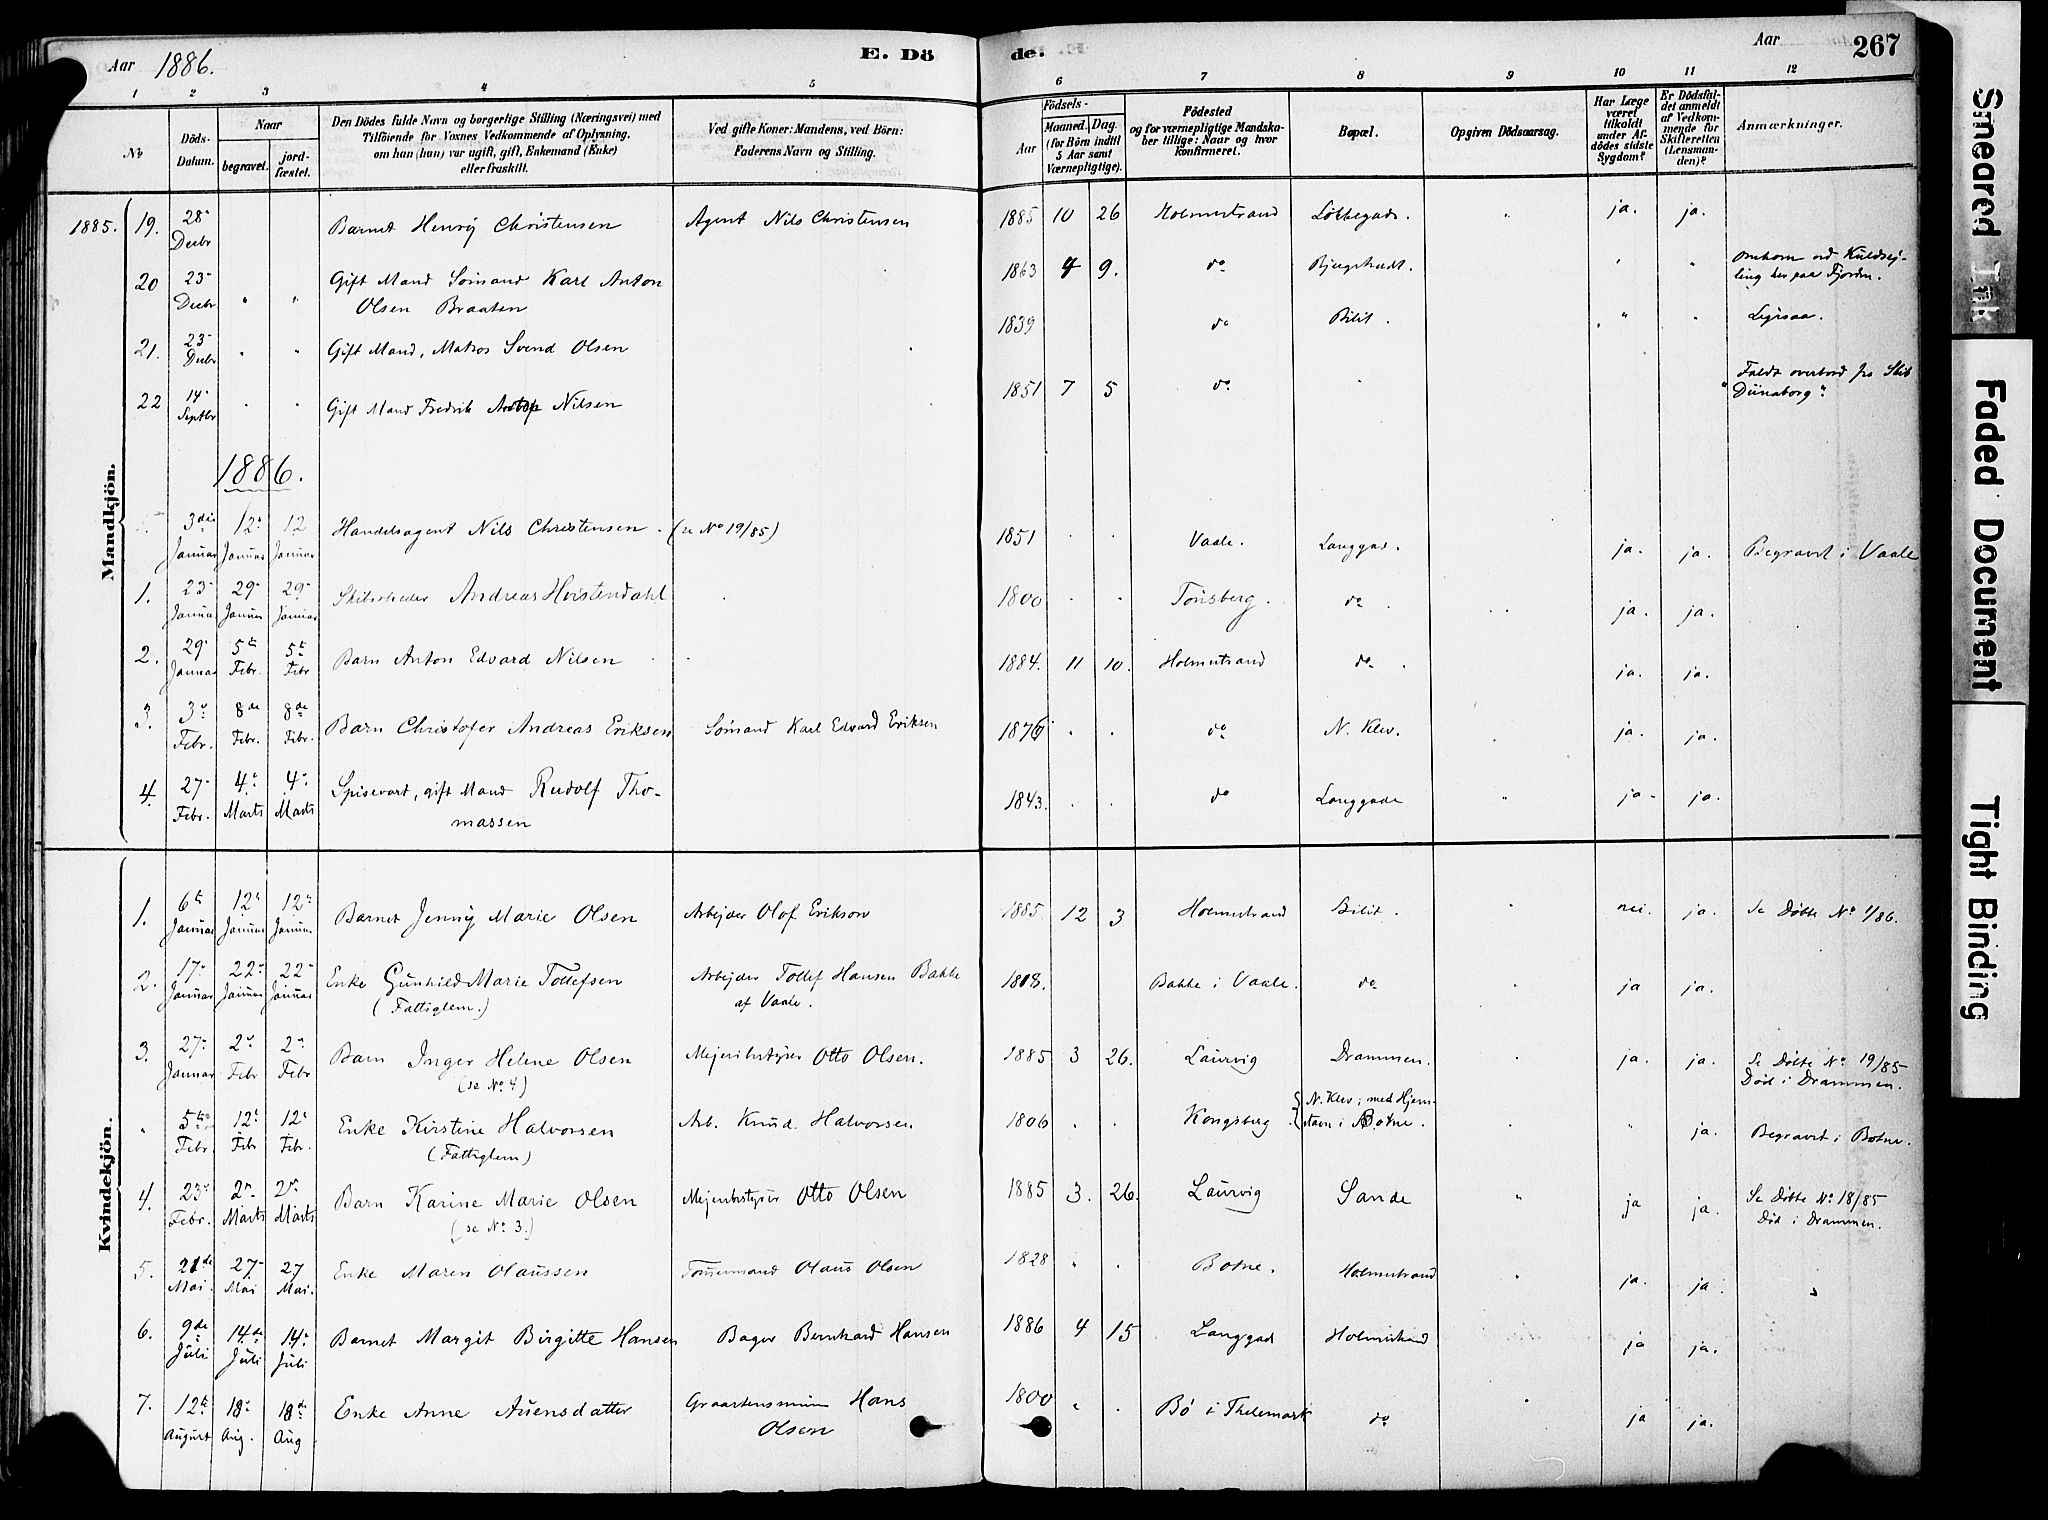 Aar 1886.
E. Dö
de.
Aar
267
1 2 3 4 5 6 7 8 9 10 11 12
No
Döds-Datum.
Naar
begravet.
jord-fæstet.
Den Dödes fulde Navn og borgerlige Stilling (Næringsvei) med
Tilföiende for Voxnes Vedkommende af Oplysning,
om han (hun) var ugift, gift, Enkemand (Enke)
eller fraskilt.
Ved gifte Koner: Mandens, ved Börn:
Faderens Navn og Stilling.
Födsels-
Aar
Maaned. Dag.
(for Börn indtil
5 Aar samt
Værnepligtige).
Födested
og for værnepligtige Mandska-
ber tillige: Naar og hvor
konfirmeret.
Bopæl.
Opgiven Dödsaarsag.
Har Læge
været
tilkaldt
under Af-
dödes sidste
Sygdom?
Er Dödsfal-
det anmeldt
af Vedkom-
mende for
Skifteretten
(Lensman-
den)?
Anmærkninger.
Mandkjön.
1885. 19. 28 Decbr Barnet Henrÿ Christensen Agent Nils Christensen 1885 10 26 Holmestrand Lökkegade. " ja. ja.
20 23 Decbr " " Gift Mand Sømand Karl Anton
Olsen Braaten 1863 4 9. do Bjergstrædt. " " Omkom ved Kuldsej-
ling her paa Fjorden.
21. 23 Decbr " " Gift Mand, Matros Svend Olsen 1839 do Bilit. " " Ligesaa.
22 14 Septbr " " Gift Mand Fredrik Nilsen 1851 7 5 do " Faldt overbord fra Skib
"Dünaborg"
1886.
3die Januar 12 Januar 12 Januar Handelsagent Nils Christensen. (se No 19/85) 1851 Vaale. Langgad. ja. ja. Begravet i Vaale
1. 23 Januar 29 Januar 29 Januar Skibsrheder Andreas Hvistendahl 1800 Tönsberg. do. ja. ja.
2. 29 Januar 5te Febr. 5te Febr Barn Anton Edvard Nilsen 1884. 11 10. Holmestrand do. ja. ja.
3. 3 Febr. 8de Febr. 8de Febr. Barn Christofer Andreas Eriksen Sømand Karl Edvard Eriksen 1876 do N. Klev. ja. ja.
4. 27 Febr. 4 Marts 4 Marts Spisevært, gift Mand Rudolf Tho-
massen 1843. do Langgade " ja. ja.
Kvindekjön.
1. 6te Januar 12te Januar 12te Januar Barnet Jenny Marie Olsen Arbejder Olof Erikson 1885. 12 3 Holmestrand Bilit. nei. ja. Se Døbte No 1/86.
2. 17 Januar 22 Januar 22 Januar Enke Gunhild Marie Tollefsen
(Fattiglem.)
Arbejder Tollef Hansen Bakke
af Vaale. 1808. Bakke i Vaale. do ja ja.
3. 27 Januar 2 Febr 2 Febr Barn Inger Helene Olsen
(se No 4)
Mejeribestyrer Otto Olsen. 1885 3 26. Laurvig Drammen. ja. ja. Se Døbte No 19/85
Død i Drammen.
" 5te Febr. 12te Febr 12te Febr. Enke Kirstine Halvorsen
(Fattiglem)
Arb. Knud Halvorsen 1806 Kongsberg N. Klev; med Hjem-
stavn i Botne. " ja. Begravet i Botne.
4. 23 Febr. 2 Marts 2 Marts Barn Karine Marie Olsen
(se No 3.)
Mejeribestyrer Otto Olsen 1885 3. 26. Laurvig Sande " ja ja. Se Døbte No 18/85
Død i Drammen.
5. 21de Mai. 27 Mai 27 Mai. Enke Maren Olaussen Tømmermand Olaus Olsen 1828 Botne. Holmestrand ja. ja.
6. 9de Juli 14de Juli 14 Juli Barnet Margit Birgitte Hansen Bager Bernhard Hansen 1886 4 15 Langgad Holmestrand ja ja.
7. 12te August 18 Aug. 18de Aug Enke Anne Auensdatter Graastensmurer Hans
Olsen 1800 Bø i Thelemark do ja ja.
Smeared Ink
Faded Document
Tight Binding